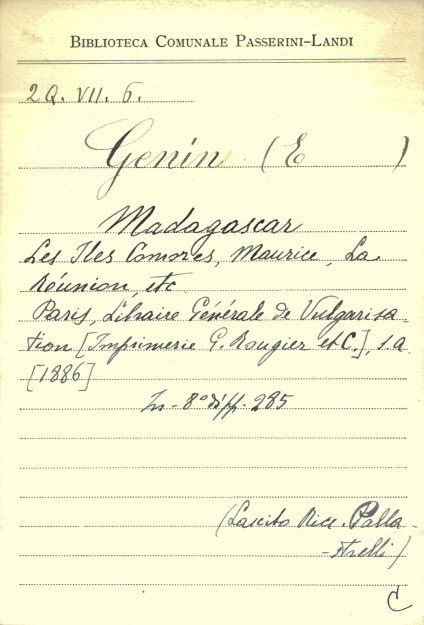 BIBLIOTECA COMUNALE PASSERINI-LANDI
2Q. VII. 6.
Genin (E )
Madagascar
Les Iles Comores, Maurice, La
Réunion, etc
Paris, Libraire Générale de Vulgarisa
tion [Imprimerie G. Rougier et C.], s.a
[1886]
In-8° pp. 285
(Lascito Ricc. Palla-
-strelli)
C